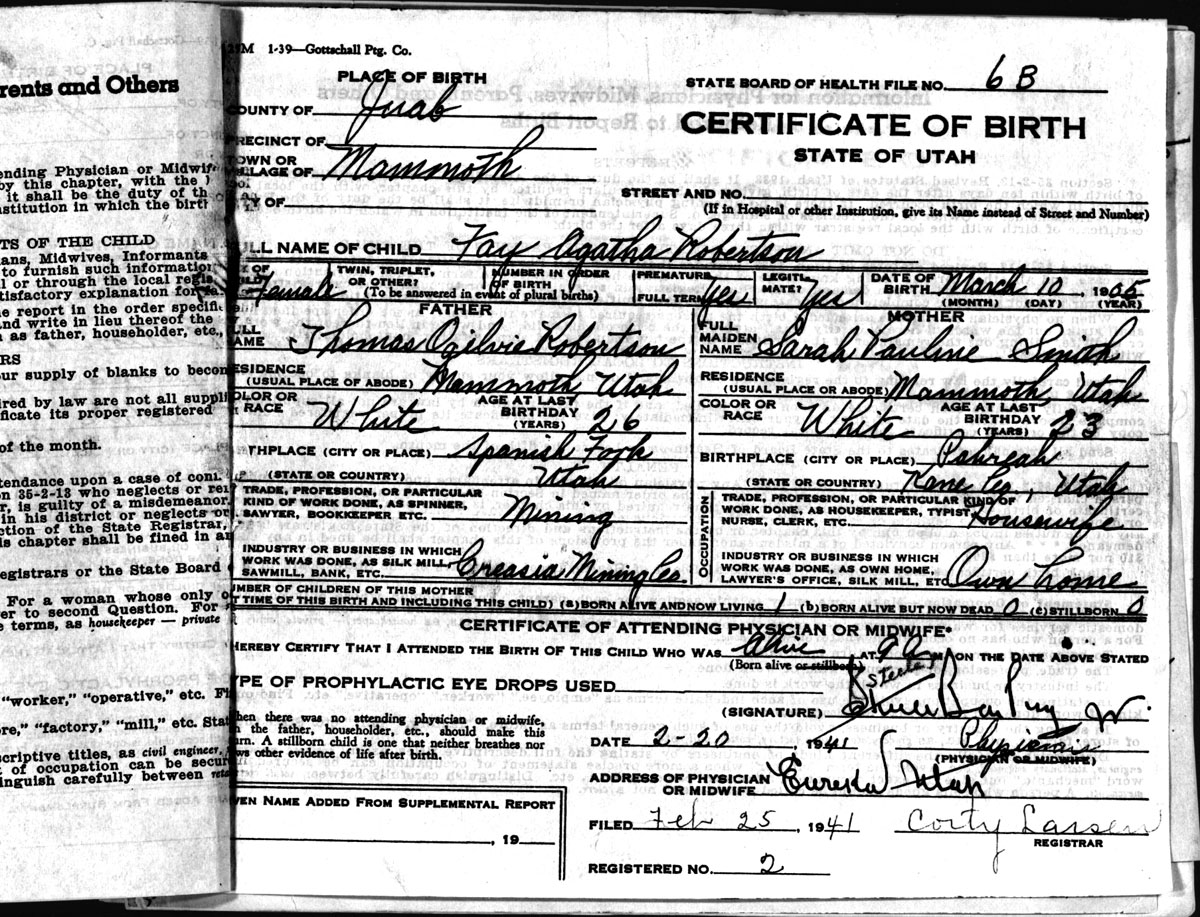 rents and Others
ending Physician or Midwife
by this chapter, with the
it shall be the duty of th
nstitution in which the birth
TS OF THE CHILD
ans, Midwives, Informants
to furnish such information
l or through the local regis
tisfactory explanation for
e report in the order specifi
nd write in lieu thereof the
n as father, householder, etc.,
RS
our supply of blanks to becom
ired by law are not all suppli
ficate its proper registered
of the month.
ttendance upon a case of con
on 35-2-13 who neglects or re
r, is guilty of a misdemeanor,
in his district or neglects or
ction of the State Registrar,
is chapter shall be fined in an
egistrars or the State Board
For a woman whose only o
er to second Question. For
e terms, as housekeeper — private
"worker," "operative," etc. Fi
ore," "factory," "mill," etc. Stat
scriptive titles, as civil engineer,
t of occupation can be secur
inguish carefully between
M 1-39—Gottschall Ptg. Co.
PLACE OF BIRTH
STATE BOARD OF HEALTH FILE NO. 6 B
COUNTY OF Juab
CERTIFICATE OF BIRTH
STATE OF UTAH
PRECINCT OF
TOWN OR
VILLAGE OF Mammoth
STREET AND NO.
(If in Hospital or other Institution, give its Name instead of Street and Number)
CITY OF
FULL NAME OF CHILD Fay Agatha Robertson
SEX OF CHILD Female
TWIN, TRIPLET, OR OTHER?
NUMBER IN ORDER OF BIRTH
(To be answered in event of plural births)
PREMATURE
FULL TERM yes
LEGITIMATE? yes
DATE OF BIRTH March 10, 1905
(MONTH) (DAY) (YEAR)
FATHER
FULL NAME Thomas Ogilvie Robertson
RESIDENCE
(USUAL PLACE OF ABODE) Mammoth, Utah
COLOR OR RACE White
AGE AT LAST BIRTHDAY (YEARS) 26
BIRTHPLACE (CITY OR PLACE) Spanish Fork
(STATE OR COUNTRY) Utah
TRADE, PROFESSION, OR PARTICULAR
KIND OF WORK DONE, AS SPINNER,
SAWYER, BOOKKEEPER ETC. Mining
INDUSTRY OR BUSINESS IN WHICH
WORK WAS DONE, AS SILK MILL,
SAWMILL, BANK, ETC. Creasia Mining Co.
MOTHER
FULL MAIDEN NAME Sarah Pauline Smith
RESIDENCE
(USUAL PLACE OR ABODE) Mammoth, Utah
COLOR OR RACE White
AGE AT LAST BIRTHDAY (YEARS) 23
BIRTHPLACE (CITY OR PLACE) Pahreah
(STATE OR COUNTRY) Kane Co, Utah
OCCUPATION
TRADE, PROFESSION, OR PARTICULAR KIND OF
WORK DONE, AS HOUSEKEEPER, TYPIST
NURSE, CLERK, ETC. Housewife
INDUSTRY OR BUSINESS IN WHICH
WORK WAS DONE, AS OWN HOME,
LAWYER'S OFFICE, SILK MILL, ETC Own home
NUMBER OF CHILDREN OF THIS MOTHER
T TIME OF THIS BIRTH AND INCLUDING THIS CHILD) (a) BORN ALIVE AND NOW LIVING 1 (b) BORN ALIVE BUT NOW DEAD 0 (c) STILLBORN 0
CERTIFICATE OF ATTENDING PHYSICIAN OR MIDWIFE*
HEREBY CERTIFY THAT I ATTENDED THE BIRTH OF THIS CHILD WHO WAS Alive AT 9 A M ON THE DATE ABOVE STATED
(Born alive or stillborn)
TYPE OF PROPHYLACTIC EYE DROPS USED
Steele
(SIGNATURE) Steele Bailey Jr.
When there was no attending physician or midwife,
n the father, householder, etc., should make this
urn. A stillborn child is one that neither breathes nor
ws other evidence of life after birth.
DATE 2-20 1941 Physician
(PHYSICIAN OR MIDWIFE)
ADDRESS OF PHYSICIAN
OR MIDWIFE Eureka Utah
GIVEN NAME ADDED FROM SUPPLEMENTAL REPORT
, 19
FILED Feb 25, 1941 Corty Larsen
REGISTRAR
REGISTERED NO. 2